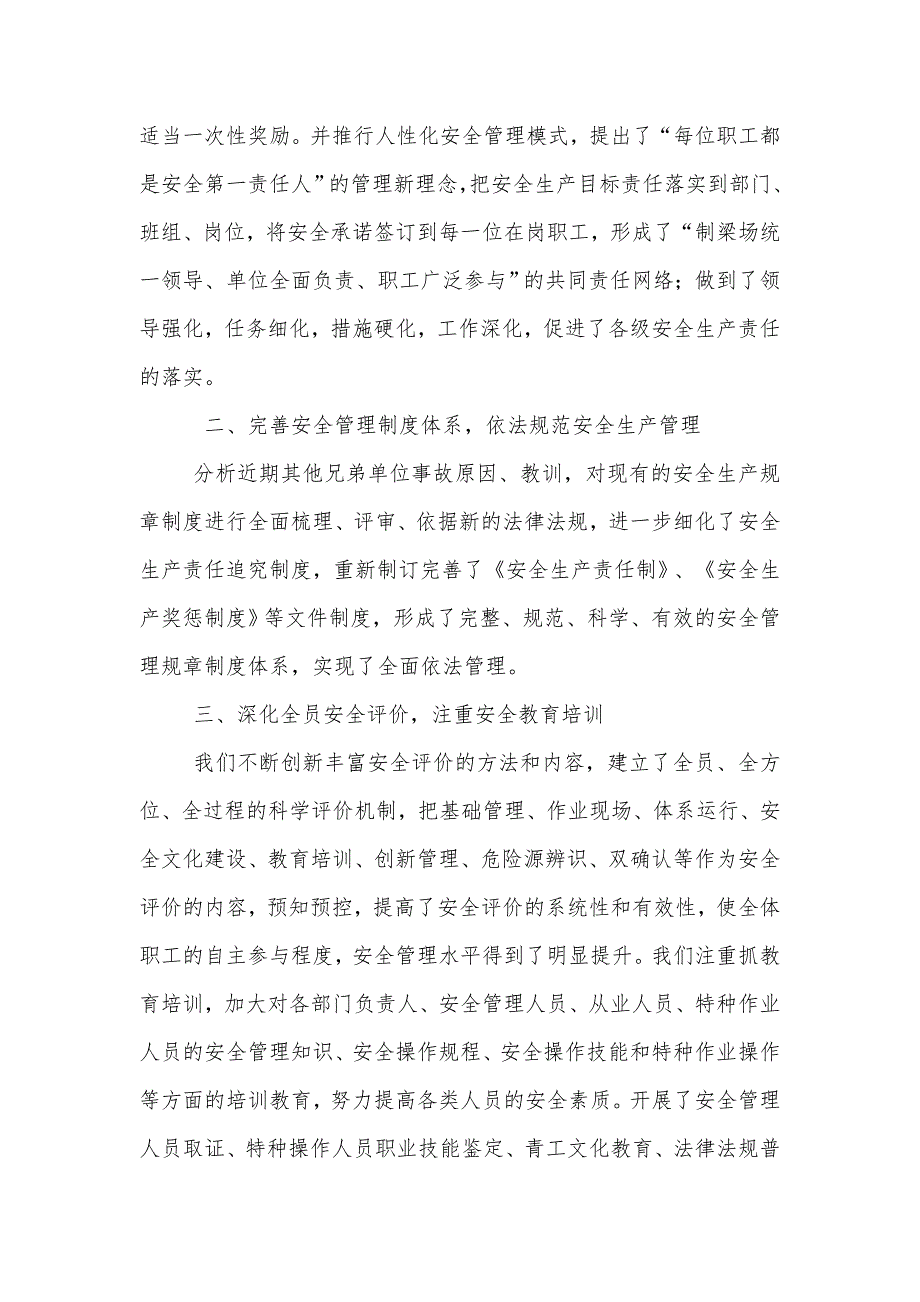 适当一次性奖励。并推行人性化安全管理模式，提出了“每位职工都
是安全第一责任人”的管理新理念，把安全生产目标责任落实到部门、
班组、岗位，将安全承诺签订到每一位在岗职工，形成了“制梁场统
一领导、单位全面负责、职工广泛参与”的共同责任网络；做到了领
导强化，任务细化，措施硬化，工作深化，促进了各级安全生产责任
的落实。
二、完善安全管理制度体系，依法规范安全生产管理
分析近期其他兄弟单位事故原因、教训，对现有的安全生产规
章制度进行全面梳理、评审、依据新的法律法规，进一步细化了安全
生产责任追究制度，重新制订完善了《安全生产责任制》、《安全生
产奖惩制度》等文件制度，形成了完整、规范、科学、有效的安全管
理规章制度体系，实现了全面依法管理。
三、深化全员安全评价，注重安全教育培训
我们不断创新丰富安全评价的方法和内容，建立了全员、全方
位、全过程的科学评价机制，把基础管理、作业现场、体系运行、安
全文化建设、教育培训、创新管理、危险源辨识、双确认等作为安全
评价的内容，预知预控，提高了安全评价的系统性和有效性，使全体
职工的自主参与程度，安全管理水平得到了明显提升。我们注重抓教
育培训，加大对各部门负责人、安全管理人员、从业人员、特种作业
人员的安全管理知识、安全操作规程、安全操作技能和特种作业操作
等方面的培训教育，努力提高各类人员的安全素质。开展了安全管理
人员取证、特种操作人员职业技能鉴定、青工文化教育、法律法规普